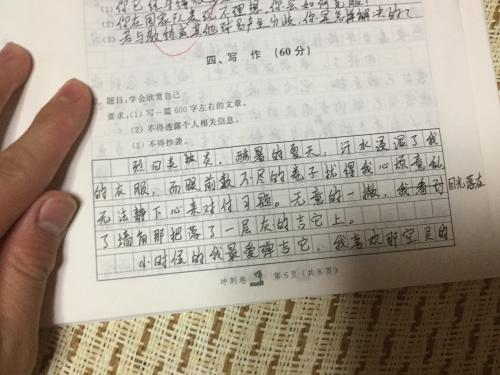 (1)
(2) 你在国家队表现不理想,你会如何克服?
(3) 若与教练或其他球员产生分歧,你是怎样解决的?
四、写 作 (60分)
题目:学会欣赏自己
要求:(1) 写一篇600字左右的文章。
(2) 不得透露个人相关信息。
(3) 不得抄袭。
烈日炎炎,酷暑的夏天,汗水浸湿了我
的衣服,而眼前数不尽的卷子扰得我心烦意乱
无法静下心来对付习题。无意的一撇,我看到目光落在
了墙角那把落了一层灰的吉它上。
小时候的我最爱弹吉它,我喜欢那空灵的
冲刺卷 第5页(共8页)